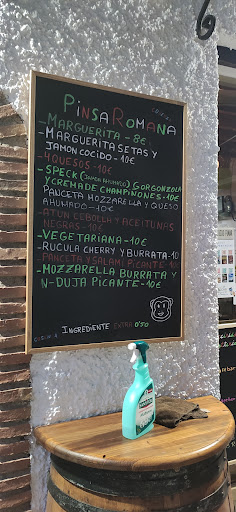 PINSA ROMANA
-MARGUERITA - 8€
-MARGUERITA SETAS Y
JAMON COCIDO - 10€
-4 QUESOS - 10€
-SPECK (JAMON AHUMADO) GORGONZOLA
Y CREMA DE CHAMPIÑONES - 10€
-PANCETA MOZZARELLA Y QUESO
AHUMADO - 10€
-ATUN CEBOLLA Y ACEITUNAS
NEGRAS - 10€
-VEGETARIANA - 10€
-RUCULA CHERRY Y BURRATA - 10
-PANCETA Y SALAMI PICANTE - 10€
-MOZZARELLA BURRATA Y
N-DUJA PICANTE - 10€
INGREDIENTE EXTRA 0'50